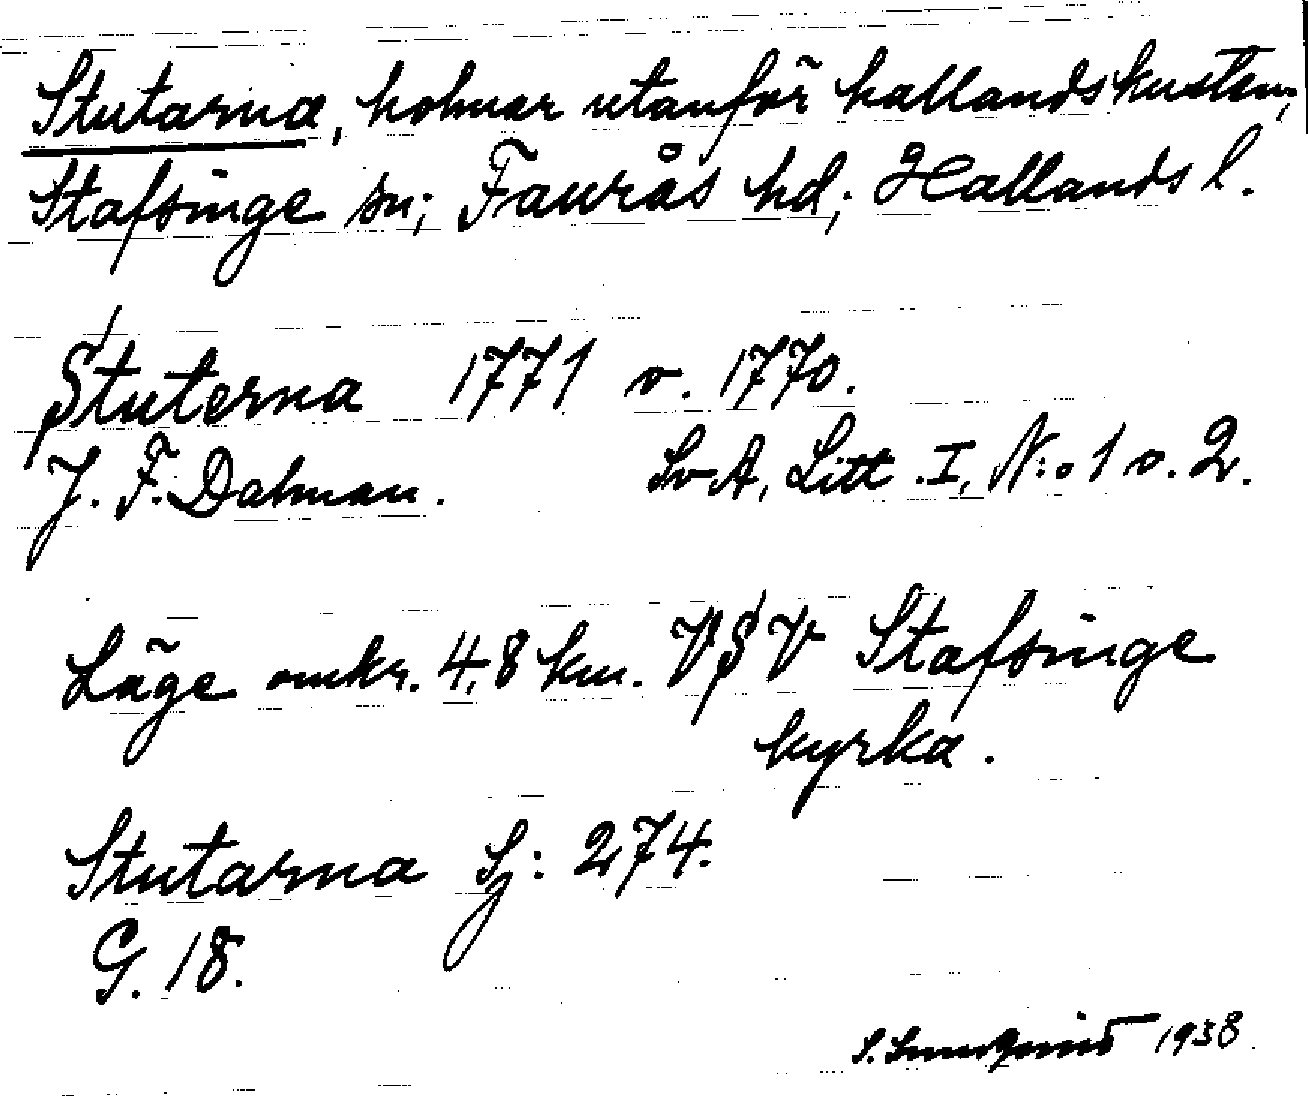 Stutarna, holmar utanför hallandskusten;
Stafsinge sn; Faurås hd; Hallands l.
Stuterna 1771 o. 1770.
J. F. Dalman. SvA, Litt. I, N:o 1 o. 2.
Läge omkr. 4,8 km. VSV Stafsinge
kyrka.
Stutarna Sj: 274.
G. 18.
S. 1938